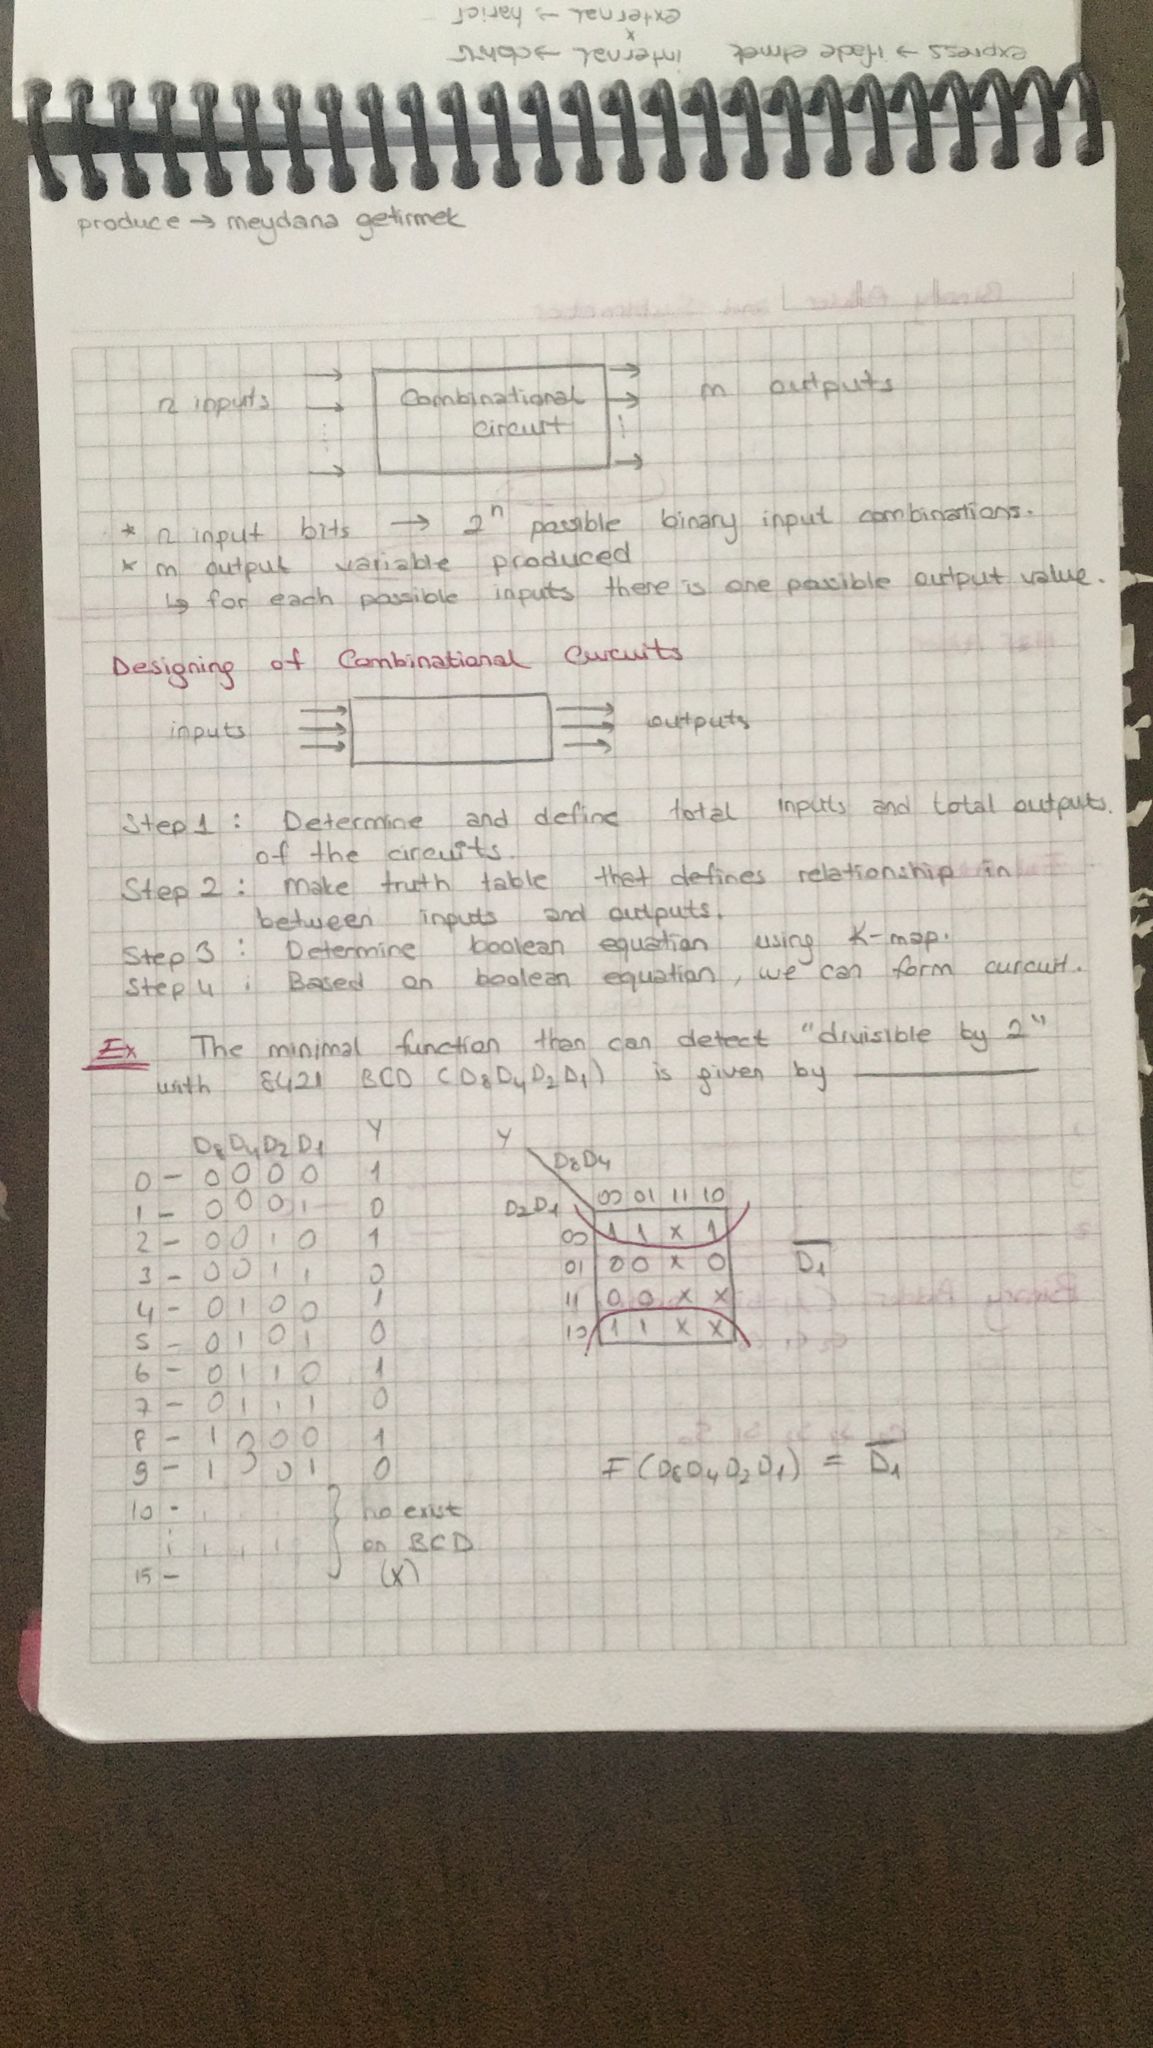 express → ifade etmek
internal → dahili
external → harici
produce → meydana getirmek
n inputs
Combinational
circuit
m outputs
* n input bits → 2^n possible binary input combinations.
* m output variable produced
↳ for each possible inputs there is one possible output value.
Designing of Combinational Circuits
inputs
outputs
Step 1 : Determine and define total inputs and total outputs.
of the circuits.
Step 2 : make truth table that defines relationship in
between inputs and outputs.
Step 3 : Determine boolean equation using K-map.
Step 4 : Based on boolean equation, we can form curcuit.
Ex The minimal function than can detect "divisible by 2"
with 8421 BCD (D8D4D2D1) is given by
D8 D4 D2 D1 Y
0 - 0 0 0 0 1
1 - 0 0 0 1 0
2 - 0 0 1 0 1
3 - 0 0 1 1 0
4 - 0 1 0 0 1
5 - 0 1 0 1 0
6 - 0 1 1 0 1
7 - 0 1 1 1 0
8 - 1 0 0 0 1
9 - 1 0 0 1 0
10 -
15 -
no exist
on BCD
(X)
Y
D8D4
D2D1 00 01 11 10
00 1 1 x 1
01 0 0 x 0
11 0 0 x x
10 1 1 x x
D̅1̅
F(D8D4D2D1) = D̅1̅